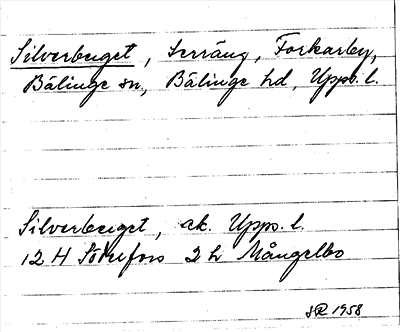 Silverberget, Terräng, Forkarby,
Bälinge sn, Bälinge hd, Upps. l.
Silverberget, ek. Upps. l.
12 H Söderfors 2 h Mångelbo
1958